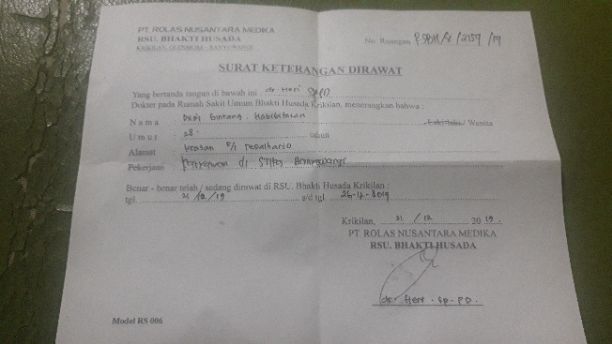 PT. ROLAS NUSANTARA MEDIKA
RSU. BHAKTI HUSADA
KRIKILAN, GLENMORE - BANYUWANGI
No. Ruangan
SURAT KETERANGAN DIRAWAT
Yang bertanda tangan di bawah ini : dr Heri Sp.PD
Dokter pada Rumah Sakit Umum Bhakti Husada Krikilan, menerangkan bahwa :
Nama : Bintang Laki-laki / Wanita
Umur : 28 tahun
Alamat :
Pekerjaan : di Banyuwangi
Benar - benar telah / sedang dirawat di RSU. Bhakti Husada Krikilan :
tgl. 21/12/19 s/d tgl 26-12-2019
Krikilan, 21 / 12 2019.
PT. ROLAS NUSANTARA MEDIKA
RSU. BHAKTI HUSADA
dr. Heri . Sp.PD.
Model RS 006